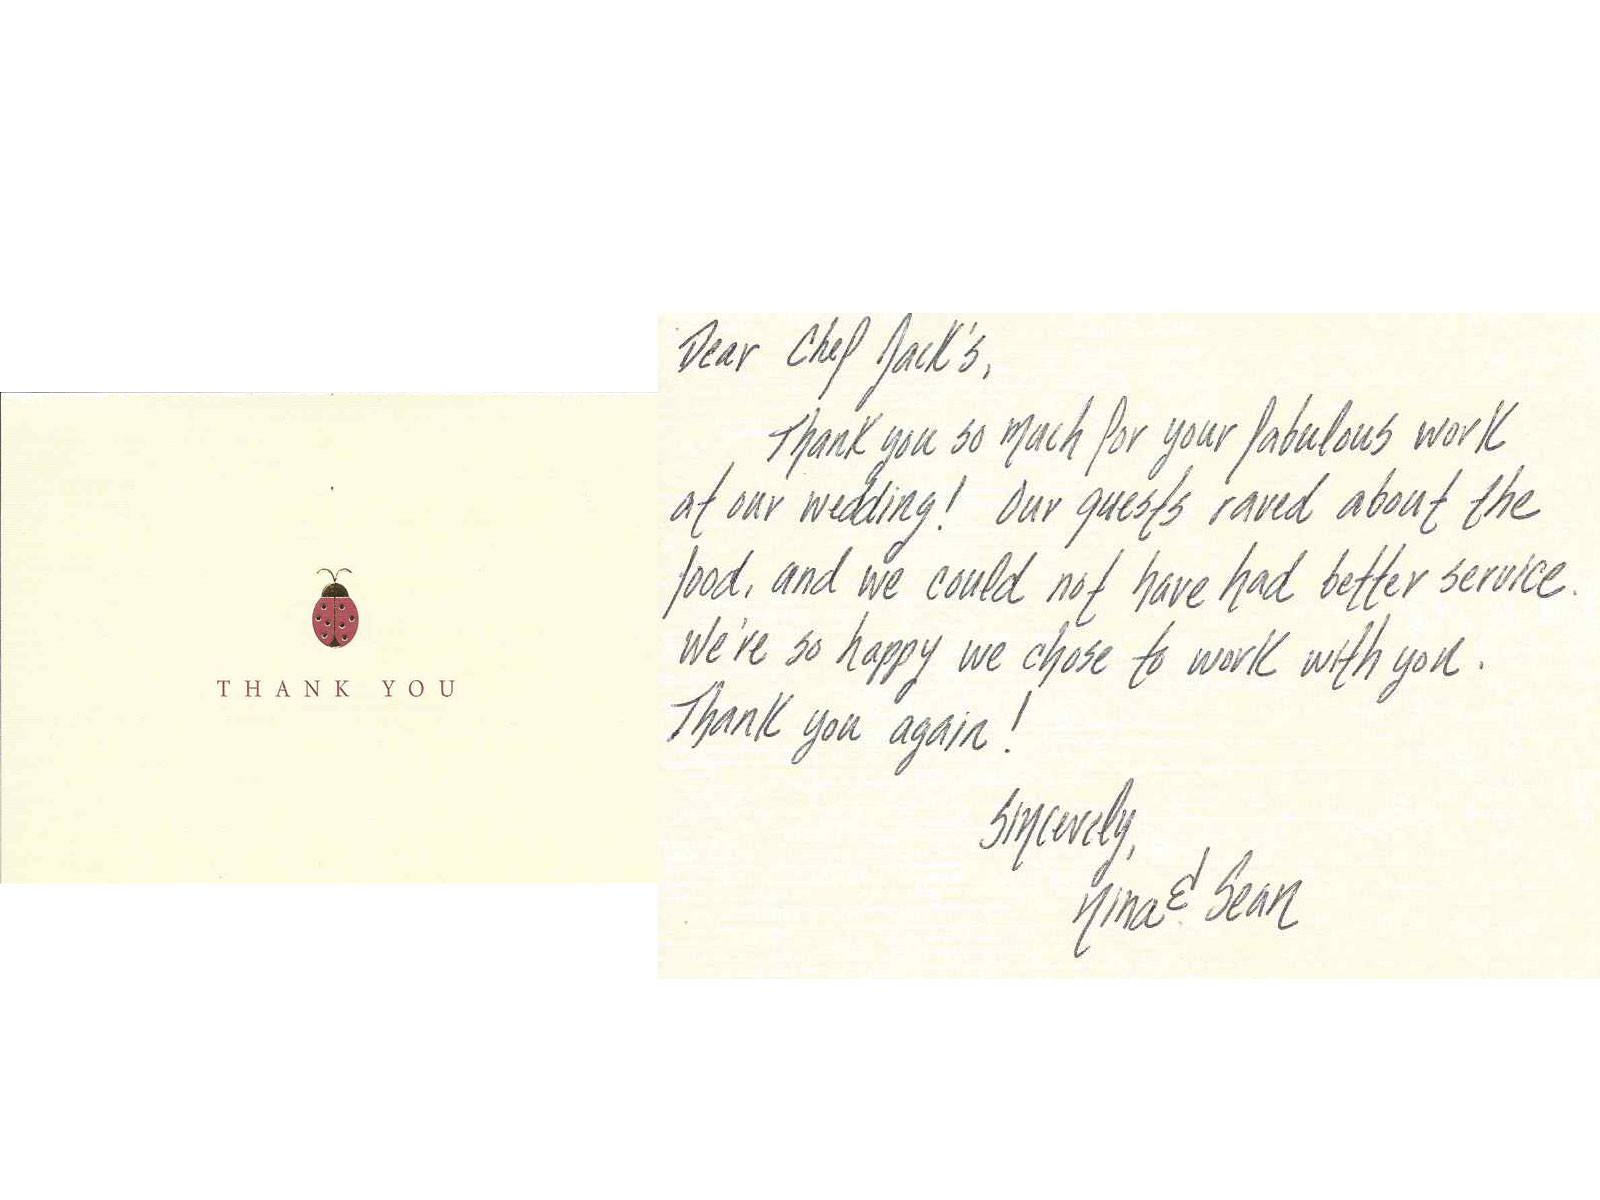 THANK YOU
Dear Chef Jack's,
Thank you so much for your fabulous work
at our wedding! Our guests raved about the
food, and we could not have had better service.
We're so happy we chose to work with you.
Thank you again!
Sincerely,
Nina & Sean